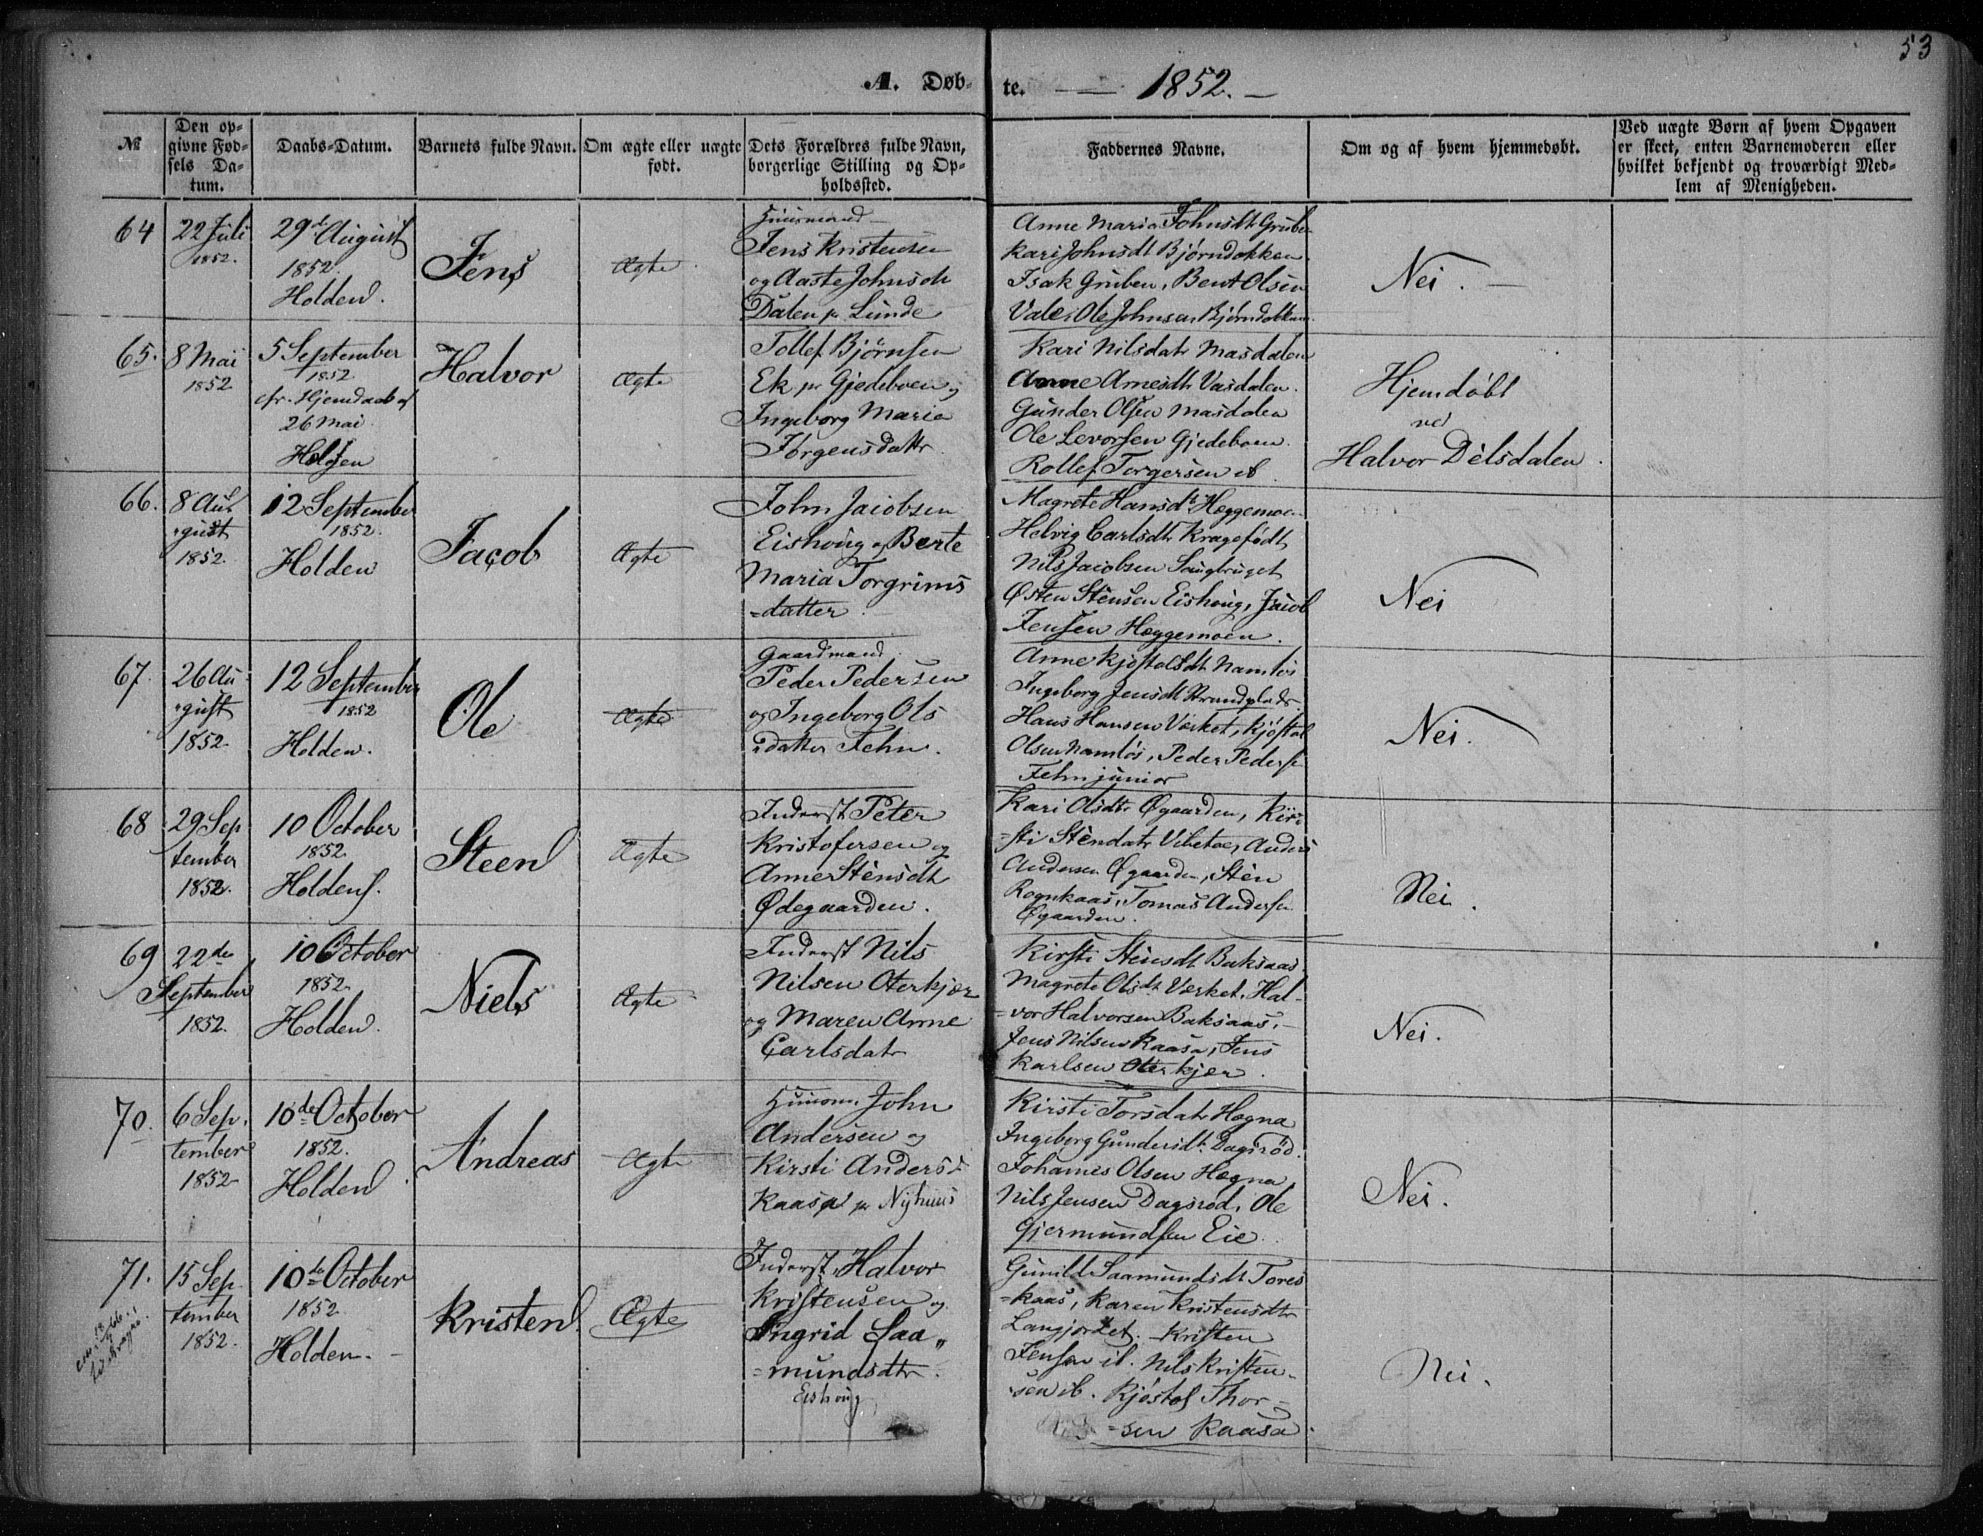 53
A. Døb- te. 1852.
№
Den op-
givne Fød-
sels Da-
tum.
Daabs-Datum.
Barnets fulde Navn.
Om ægte eller uægte
født.
Dets Forældres fulde Navn,
borgerlige Stilling og Op-
holdssted.
Faddernes Navne.
Om og af hvem hjemmedøbt.
Ved uægte Børn af hvem Opgaven
er skeet, enten Barnemoderen eller
hvilket bekjendt og troværdigt Med-
lem af Menigheden.
64
22 Juli
1852.
29de August
1852.
Holden.
Jens
Ægte
Huusmand
Jens Kristensen
og Aaste Johnsdt
Dalen pr Lunde
Anne Maria Johnsdt Gruben
Kari Johnsdt Bjørndokken
Isak Gruben, Bent Olsen
Vale, Ole Johnsen Bjørndokken.
Nei.
65.
8 Mai
1852
5 September
1852
cfr. Hjemdaab af
26 Mai
Holden
Halvor
Ægte
Tollef Bjørnsen
Ek pr Gjedeboen og
Ingeborg Maria
Jørgensdattr
Kari Nilsdatr Masdalen
Anne Arnesdtr Vasdalen.
Gunder Olsen Masdalen
Ole Levorsen Gjedeboen.
Rollef Torgersen ib
Hjemdøbt
ved
Halvor Delsdalen.
66.
8 Au-
gust
1852.
12 September
1852.
Holden
Jacob
Ægte
John Jacobsen
Eishoug og Berte
Maria Torgrims
=datter.
Magrete Hansdt Heggemoen
Helvig Carlsdtr Kragefødt
Nils Jacobsen Saugbruget
Østen Stensen Eishoug, Jacob
Jensen Heggemoen.
Nei
67.
26 Au-
gust
1852.
12 September
1852
Holden.
Ole
Ægte
Gaardmand.
Peder Pedersen
og Ingeborg Ols
=datter Fehn.
Anne Kjøstolsdt Namløs
Ingeborg Jensdt Strandplads
Hans Hansen Værket, Kjøstol
Olsen Namløs, Peder Pedersen
Fehn junior
Nei.
68
29 Sep
tember
1852.
10 October
1852.
Holden.
Steen
Ægte
Inderst Peter
Kristofersen og
Anne Stensdt
Ødegaarden.
Kari Olsdtr Øgaarden, Kir-
=sti Stendatr Vibetoe, Anders
Andersen Øgaarden, Sten
Rognkaas, Tomas Andersen
Øgaarden.
Nei.
69
22de
September
1852.
10 October
1852.
Holden.
Niels
Ægte
Inderst Nils
Nilsen Oterkjær
og Maren Anne
Carlsdatr
Kirsti Stensdt Baksaas
Magrete Olsdt Værket, Hal-
=vor Halvorsen Baksaas,
Jens Nilsen Kaasa, Jens
Karlsen Oterkjær.
Nei.
70.
6 Sep.
tember
1852
10de October
1852.
Holden
Andreas
Ægte
Huusm. John
Andersen og
Kirsti Andersd
Kaasa pr Nyhuus
Kirsti Torsdatr Hegna
Ingeborg Gundersdt Dagsrød
Johannes Olsen Hegna
Nils Jensen Dagsrød, Ole
Gjermundsen Eie.
Nei.
71.
15 Sep-
tember
1852.
10de October
1852.
Holden.
Kristen.
Ægte
Inderst, Halvor
Kristensen og
Ingrid Saa
=mundsdtr.
Eishoug
Gunild Saamundsdt Tores
=kaas, Karen Kristensdtr
Langjordet. Kristen
Jensen ib. Nils Kristen-
sen ib. Kjøstol Thor-
=sen Kaasa.
Nei.